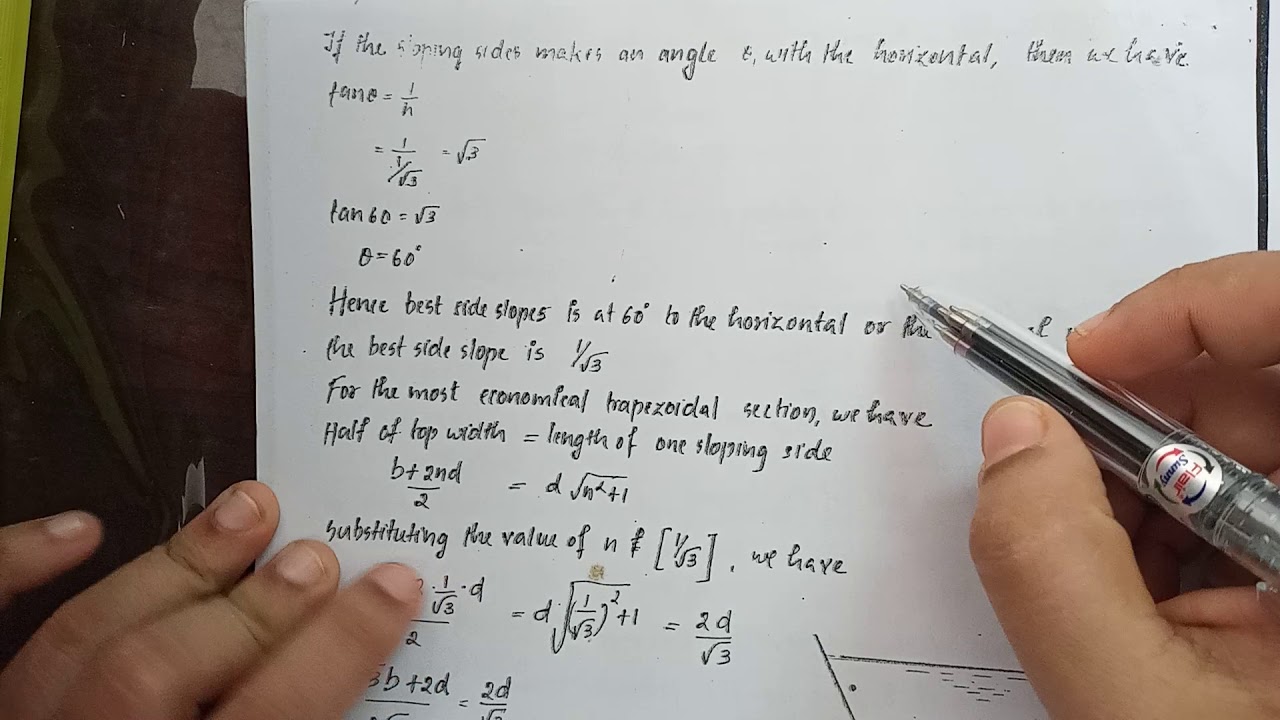 If the sloping sides makes an angle θ, with the horizontal, them we have
tanθ = 1/n
= 1/(1/√3) = √3
tan 60 = √3
θ = 60°
Hence best side slopes is at 60° to the horizontal or the
the best side slope is 1/√3
For the most economical trapezoidal section, we have
Half of top width = length of one sloping side
(b+2nd)/2 = d √(n²+1)
Substituting the value of n f [1/√3], we have
· 1/√3 · d / 2 = d √((1/√3)² + 1) = 2d/√3
b + 2d = 2d/√3
Flair
Sunny